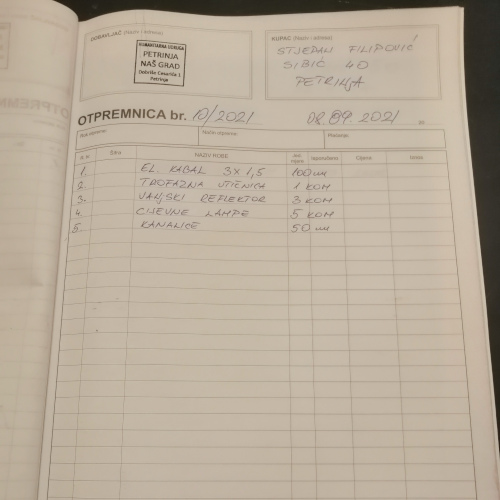 DOBAVLJAČ (Naziv i adresa)
HUMANITARNA UDRUGA
PETRINJA
NAŠ GRAD
Dobriše Cesarića 1
Petrinja
KUPAC (Naziv i adresa)
STJEPAN FILIPOVIĆ
SIBIĆ 40
PETRINJA
OTPREMNICA br. 10/2021 08.09.2021
Način otpreme
Plaćanje
R. br. Šifra NAZIV ROBE Jed. mjere Isporučeno Cijena Iznos
1. EL. KABAL 3x1,5 100 m
2. TROFAZNA UTIČNICA 1 KOM
3. VANJSKI REFLEKTOR 3 KOM
4. CIJEVNE LAMPE 5 KOM
5. KANALICE 50 m